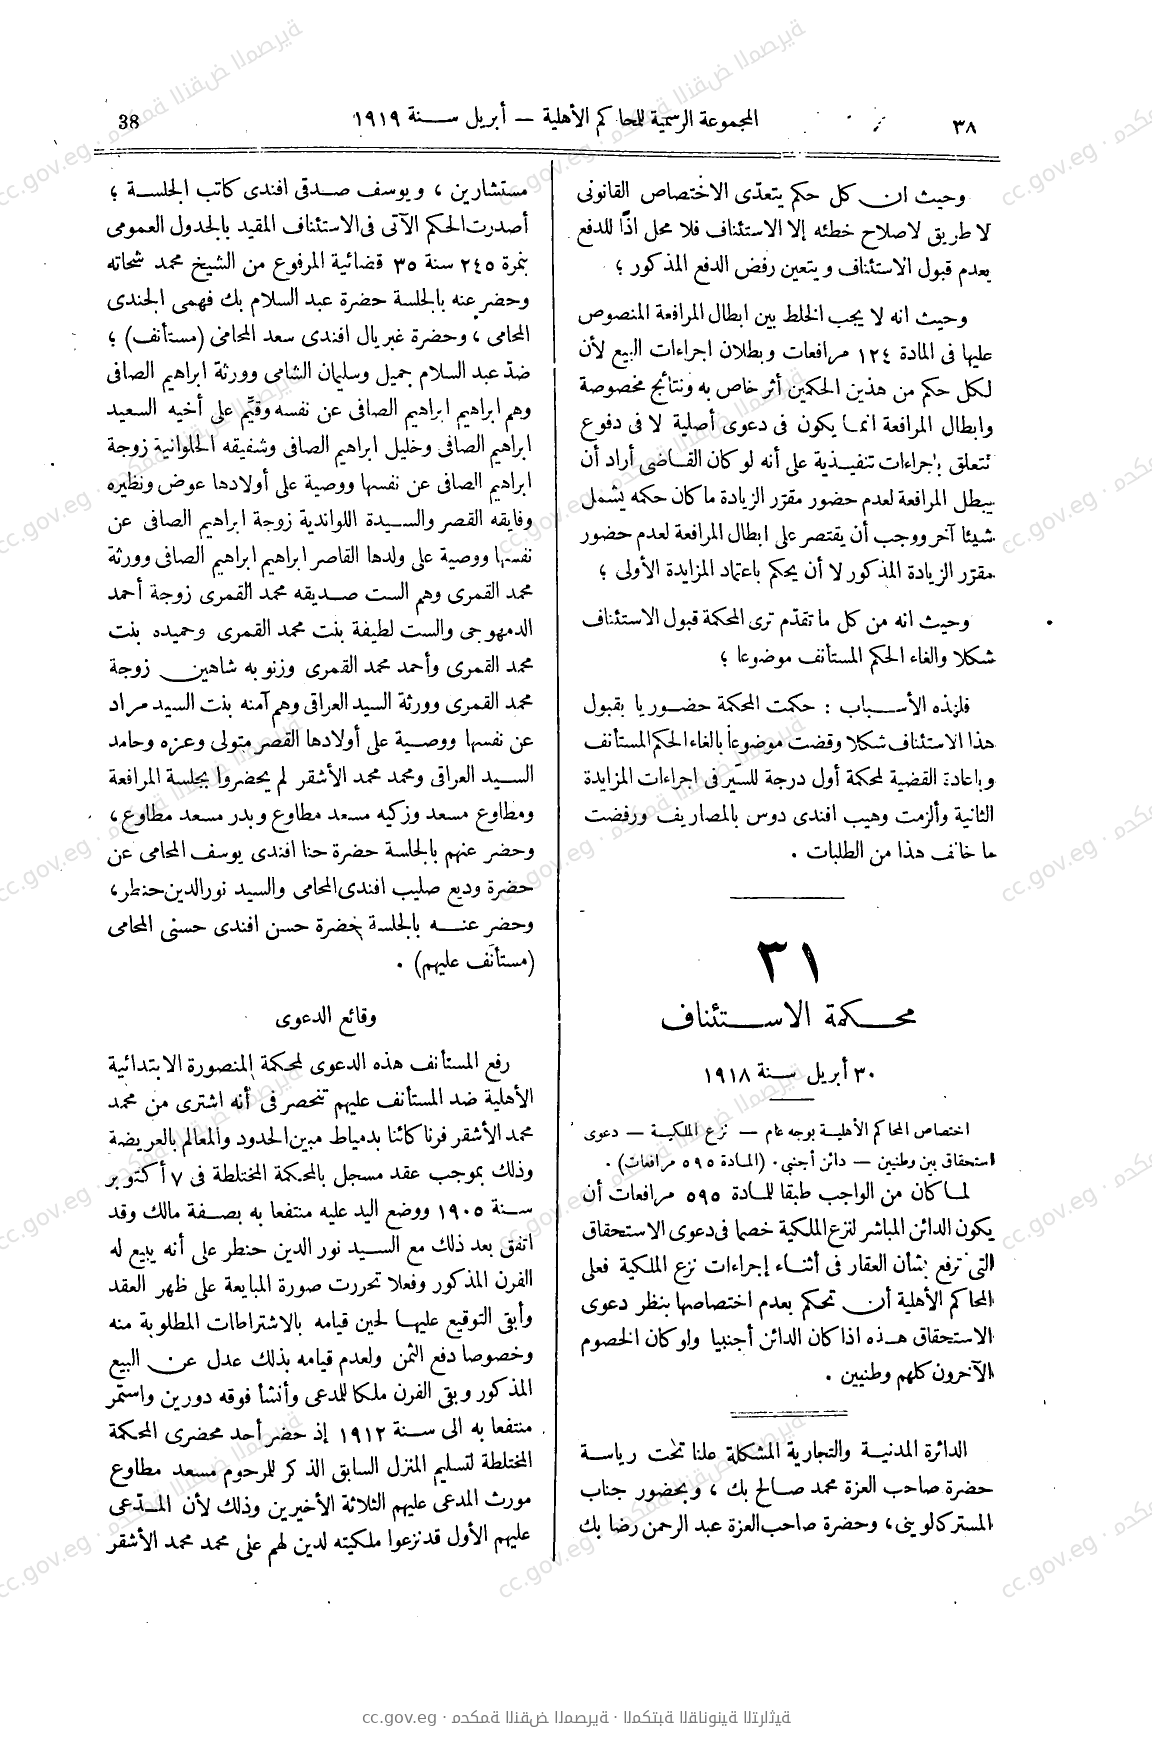 ٣٨
المجموعة الرسمية للمحاكم الأهلية – أبريل سنة ١٩١٩
38
وحيث ان كل حكم يتعدّى الاختصاص القانونى
لا طريق لاصلاح خطئه إلا الاستئناف فلا محل اذًا للدفع
بعدم قبول الاستئناف ويتعين رفض الدفع المذكور ؛
وحيث انه لا يجب الخلط بين ابطال المرافعة المنصوص
عليها فى المادة ١٢٤ مرافعات وبطلان اجراءات البيع لأن
لكل حكم من هذين الحكمين أثر خاص به ونتائج مخصوصة
وابطال المرافعة انما يكون فى دعوى أصلية لا فى دفوع
تتعلق باجراءات تنفيذية على أنه لو كان القاضى أراد أن
يبطل المرافعة لعدم حضور مقرّر الزيادة ما كان حكمه يشمل
شيئا آخر ووجب أن يقتصر على ابطال المرافعة لعدم حضور
مقرّر الزيادة المذكور لا أن يحكم باعتماد المزايدة الأولى ؛
وحيث انه من كل ما تقدّم ترى المحكمة قبول الاستئناف
شكلا والغاء الحكم المستأنف موضوعا ؛
فلهذه الأسباب : حكمت المحكمة حضوريا بقبول
هذا الاستئناف شكلا وقضت موضوعا بالغاء الحكم المستأنف
وباعادة القضية لمحكمة أول درجة للسير فى اجراءات المزايدة
الثانية وألزمت وهيب افندى دوس بالمصاريف ورفضت
ما خالف هذا من الطلبات .
٣١
محكمة الاستئناف
٣٠ أبريل سنة ١٩١٨
اختصاص المحاكم الأهلية بوجه عام – نزع الملكية – دعوى
استحقاق بين وطنيين – دائن أجنبى . (المادة ٥٩٥ مرافعات) .
لما كان من الواجب طبقا للمادة ٥٩٥ مرافعات أن
يكون الدائن المباشر لنزع الملكية خصما فى دعوى الاستحقاق
التى ترفع بشأن العقار فى أثناء إجراءات نزع الملكية فعلى
المحاكم الأهلية أن تحكم بعدم اختصاصها بنظر دعوى
الاستحقاق هذه اذا كان الدائن أجنبيا ولو كان الخصوم
الآخرون كلهم وطنيين .
الدائرة المدنية والتجارية المشكلة علنا تحت رياسة
حضرة صاحب العزة محمد صالح بك ، وبحضور جناب
المستر كلوينى ، وحضرة صاحب العزة عبد الرحمن رضا بك
مستشارين ، ويوسف صدقى افندى كاتب الجلسة ؛
أصدرت الحكم الآتى فى الاستئناف المقيد بالجدول العمومى
بنمرة ٢٤٥ سنة ٣٥ قضائية المرفوع من الشيخ محمد شحاته
وحضر عنه بالجلسة حضرة عبد السلام بك فهمى الجندى
المحامى ، وحضرة غبريال افندى سعد المحامى (مستأنف) ؛
ضدّ عبد السلام جميل وسليمان الشامى وورثة ابراهيم الصافى
وهم ابراهيم ابراهيم الصافى عن نفسه وقيّم على أخيه السعيد
ابراهيم الصافى وخليل ابراهيم الصافى وشفيقه الحلوانية زوجة
ابراهيم الصافى عن نفسها ووصية على أولادها عوض ونظيره
وفايقه القصر والسيدة اللواندية زوجة ابراهيم الصافى عن
نفسها ووصية على ولدها القاصر ابراهيم ابراهيم الصافى وورثة
محمد القمرى وهم الست صديقه محمد القمرى زوجة أحمد
الدمهوجى والست لطيفة بنت محمد القمرى وحميده بنت
محمد القمرى وأحمد محمد القمرى وزنوبه شاهين زوجة
محمد القمرى وورثة السيد العراقى وهم آمنه بنت السيد مراد
عن نفسها ووصية على أولادها القصر متولى وعزه وحامد
السيد العراقى ومحمد محمد الأشقر لم يحضروا بجلسة المرافعة
ومطاوع مسعد وزكيه مسعد مطاوع وبدر مسعد مطاوع ،
وحضر عنهم بالجلسة حضرة حنا افندى يوسف المحامى عن
حضرة وديع صليب افندى المحامى والسيد نور الدين حنطر ،
وحضر عنه بالجلسة حضرة حسن افندى حسنى المحامى
(مستأنف عليهم) .
وقائع الدعوى
رفع المستأنف هذه الدعوى لمحكمة المنصورة الابتدائية
الأهلية ضد المستأنف عليهم تنحصر فى أنه اشترى من محمد
محمد الأشقر فرنا كائنا بدمياط مبين الحدود والمعالم بالعريضة
وذلك بموجب عقد مسجل بالمحكمة المختلطة فى ٧ أكتوبر
سنة ١٩٠٥ ووضع اليد عليه منتفعا به بصفة مالك وقد
اتفق بعد ذلك مع السيد نور الدين حنطر على أنه يبيع له
الفرن المذكور وفعلا تحررت صورة المبايعة على ظهر العقد
وأبقى التوقيع عليها لحين قيامه بالاشتراطات المطلوبة منه
وخصوصا دفع الثمن ولعدم قيامه بذلك عدل عن البيع
المذكور وبقى الفرن ملكا للمدعى وأنشأ فوقه دورين واستمر
منتفعا به الى سنة ١٩١٢ إذ حضر أحد محضرى المحكمة
المختلطة لتسليم المنزل السابق الذكر للمرحوم مسعد مطاوع
مورث المدعى عليهم الثلاثة الأخيرين وذلك لأن المدّعى
عليهم الأول قد نزعوا ملكيته لدين لهم على محمد محمد الأشقر
cc.gov.eg · محكمة النقض المصرية · المكتبة القانونية التراثية